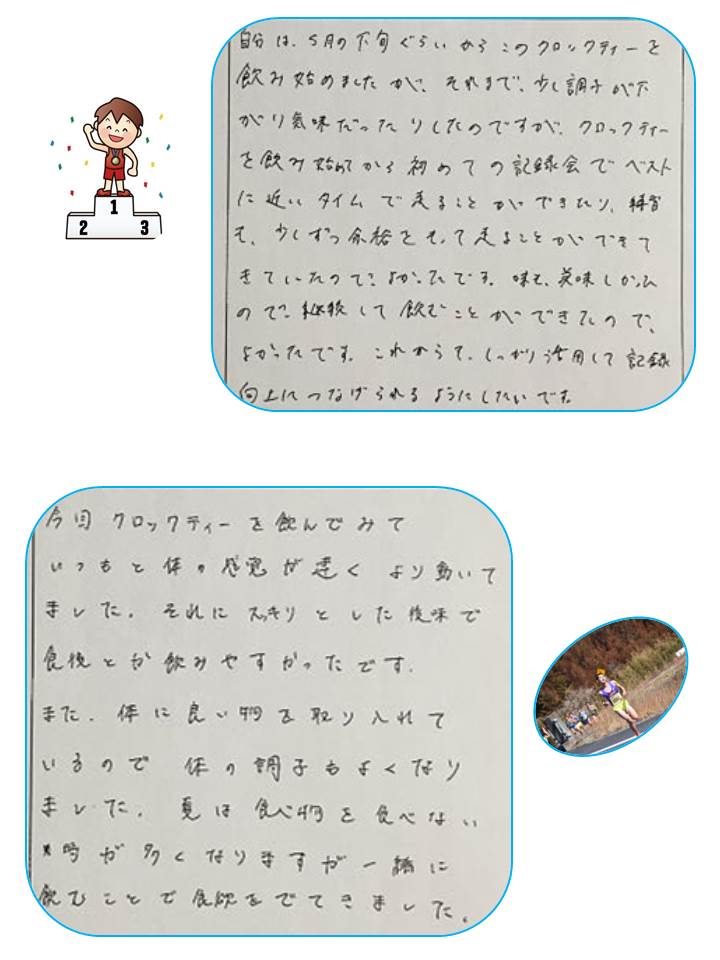 自分は、5月の下旬ぐらいからこのクロックティーを
飲み始めましたが、それまで、少し調子が下
がり気味だったりしたのですが、クロックティー
を飲み始めてから初めての記録会でベスト
に近いタイムで走ることができたり、練習
も、少しずつ余裕をもって走ることができて
きていたので、よかったです。味も、美味しかった
ので、継続して飲むことができたので、
よかったです。これからも、しっかり活用して記録
向上につなげられるようにしたいです。
1
2
3
今回クロックティーを飲んでみて
いつもと体の感覚が違くより動いて
ました。それにスッキリとした後味で
食後とか飲みやすかったです。
また、体に良い物を取り入れて
いるので体の調子もよくなり
ました。夏は食べ物を食べない
時が多くなりますが一緒に
飲むことで食欲もでてきました。